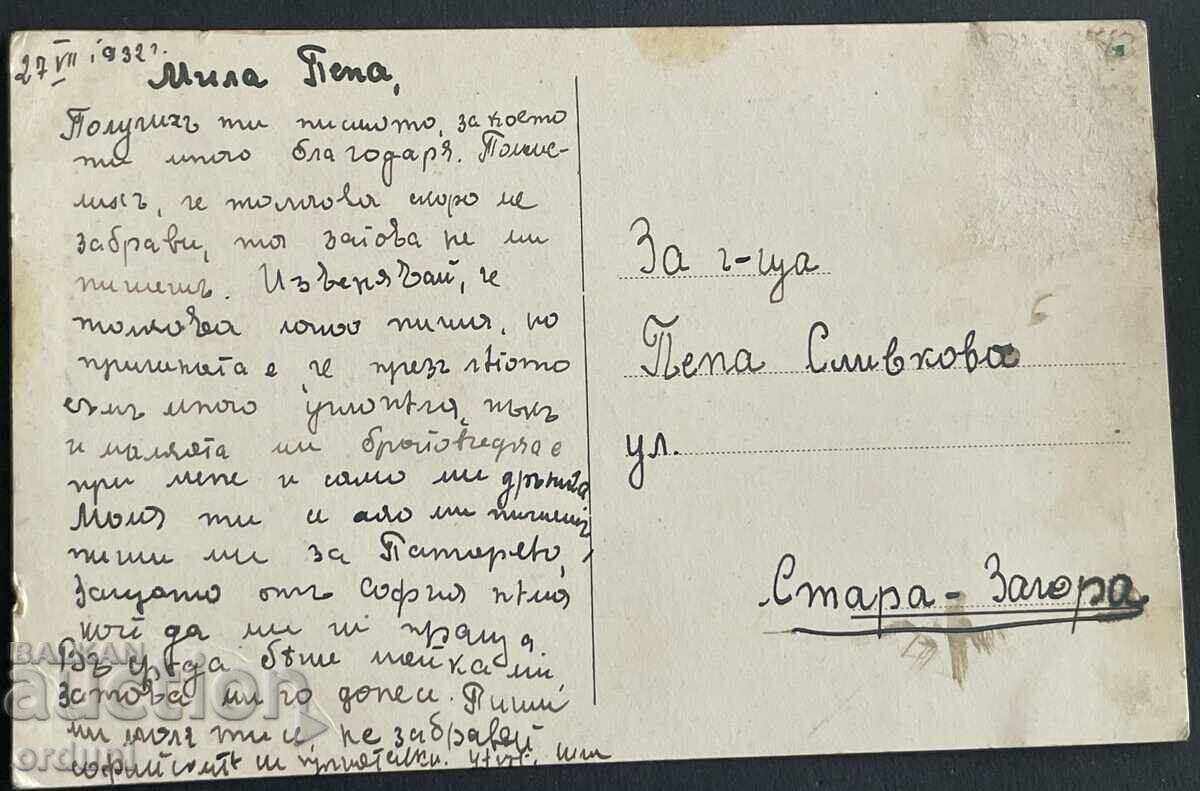 27 VII 1932 г.
Мила Пепа,
Получихъ ти писмото, за което
ти много благодаря. Помис-
лихъ, че толкова скоро ме
забрави, та затова не ми
пишешъ. Извенявай, че
толкова лошо пиша, но
причината е, че презъ лѣтото
съмъ много, пъкъ
и малката ми братовчедка е
при мене и само ми дръпка
Моля ти се ако ми пишешъ,
пиши ми за Патарево,
Защото отъ София нѣма
кой да ми ги праща.
Въ срѣда бѣше майка ми,
затова ми го донесе. Пиши
ми моля ти се, не забравяй
софийскитѣ си приятелки.
За г-ца
Пепа Сливкова
ул.
Стара-Загора
BALKAN
auction
orduni